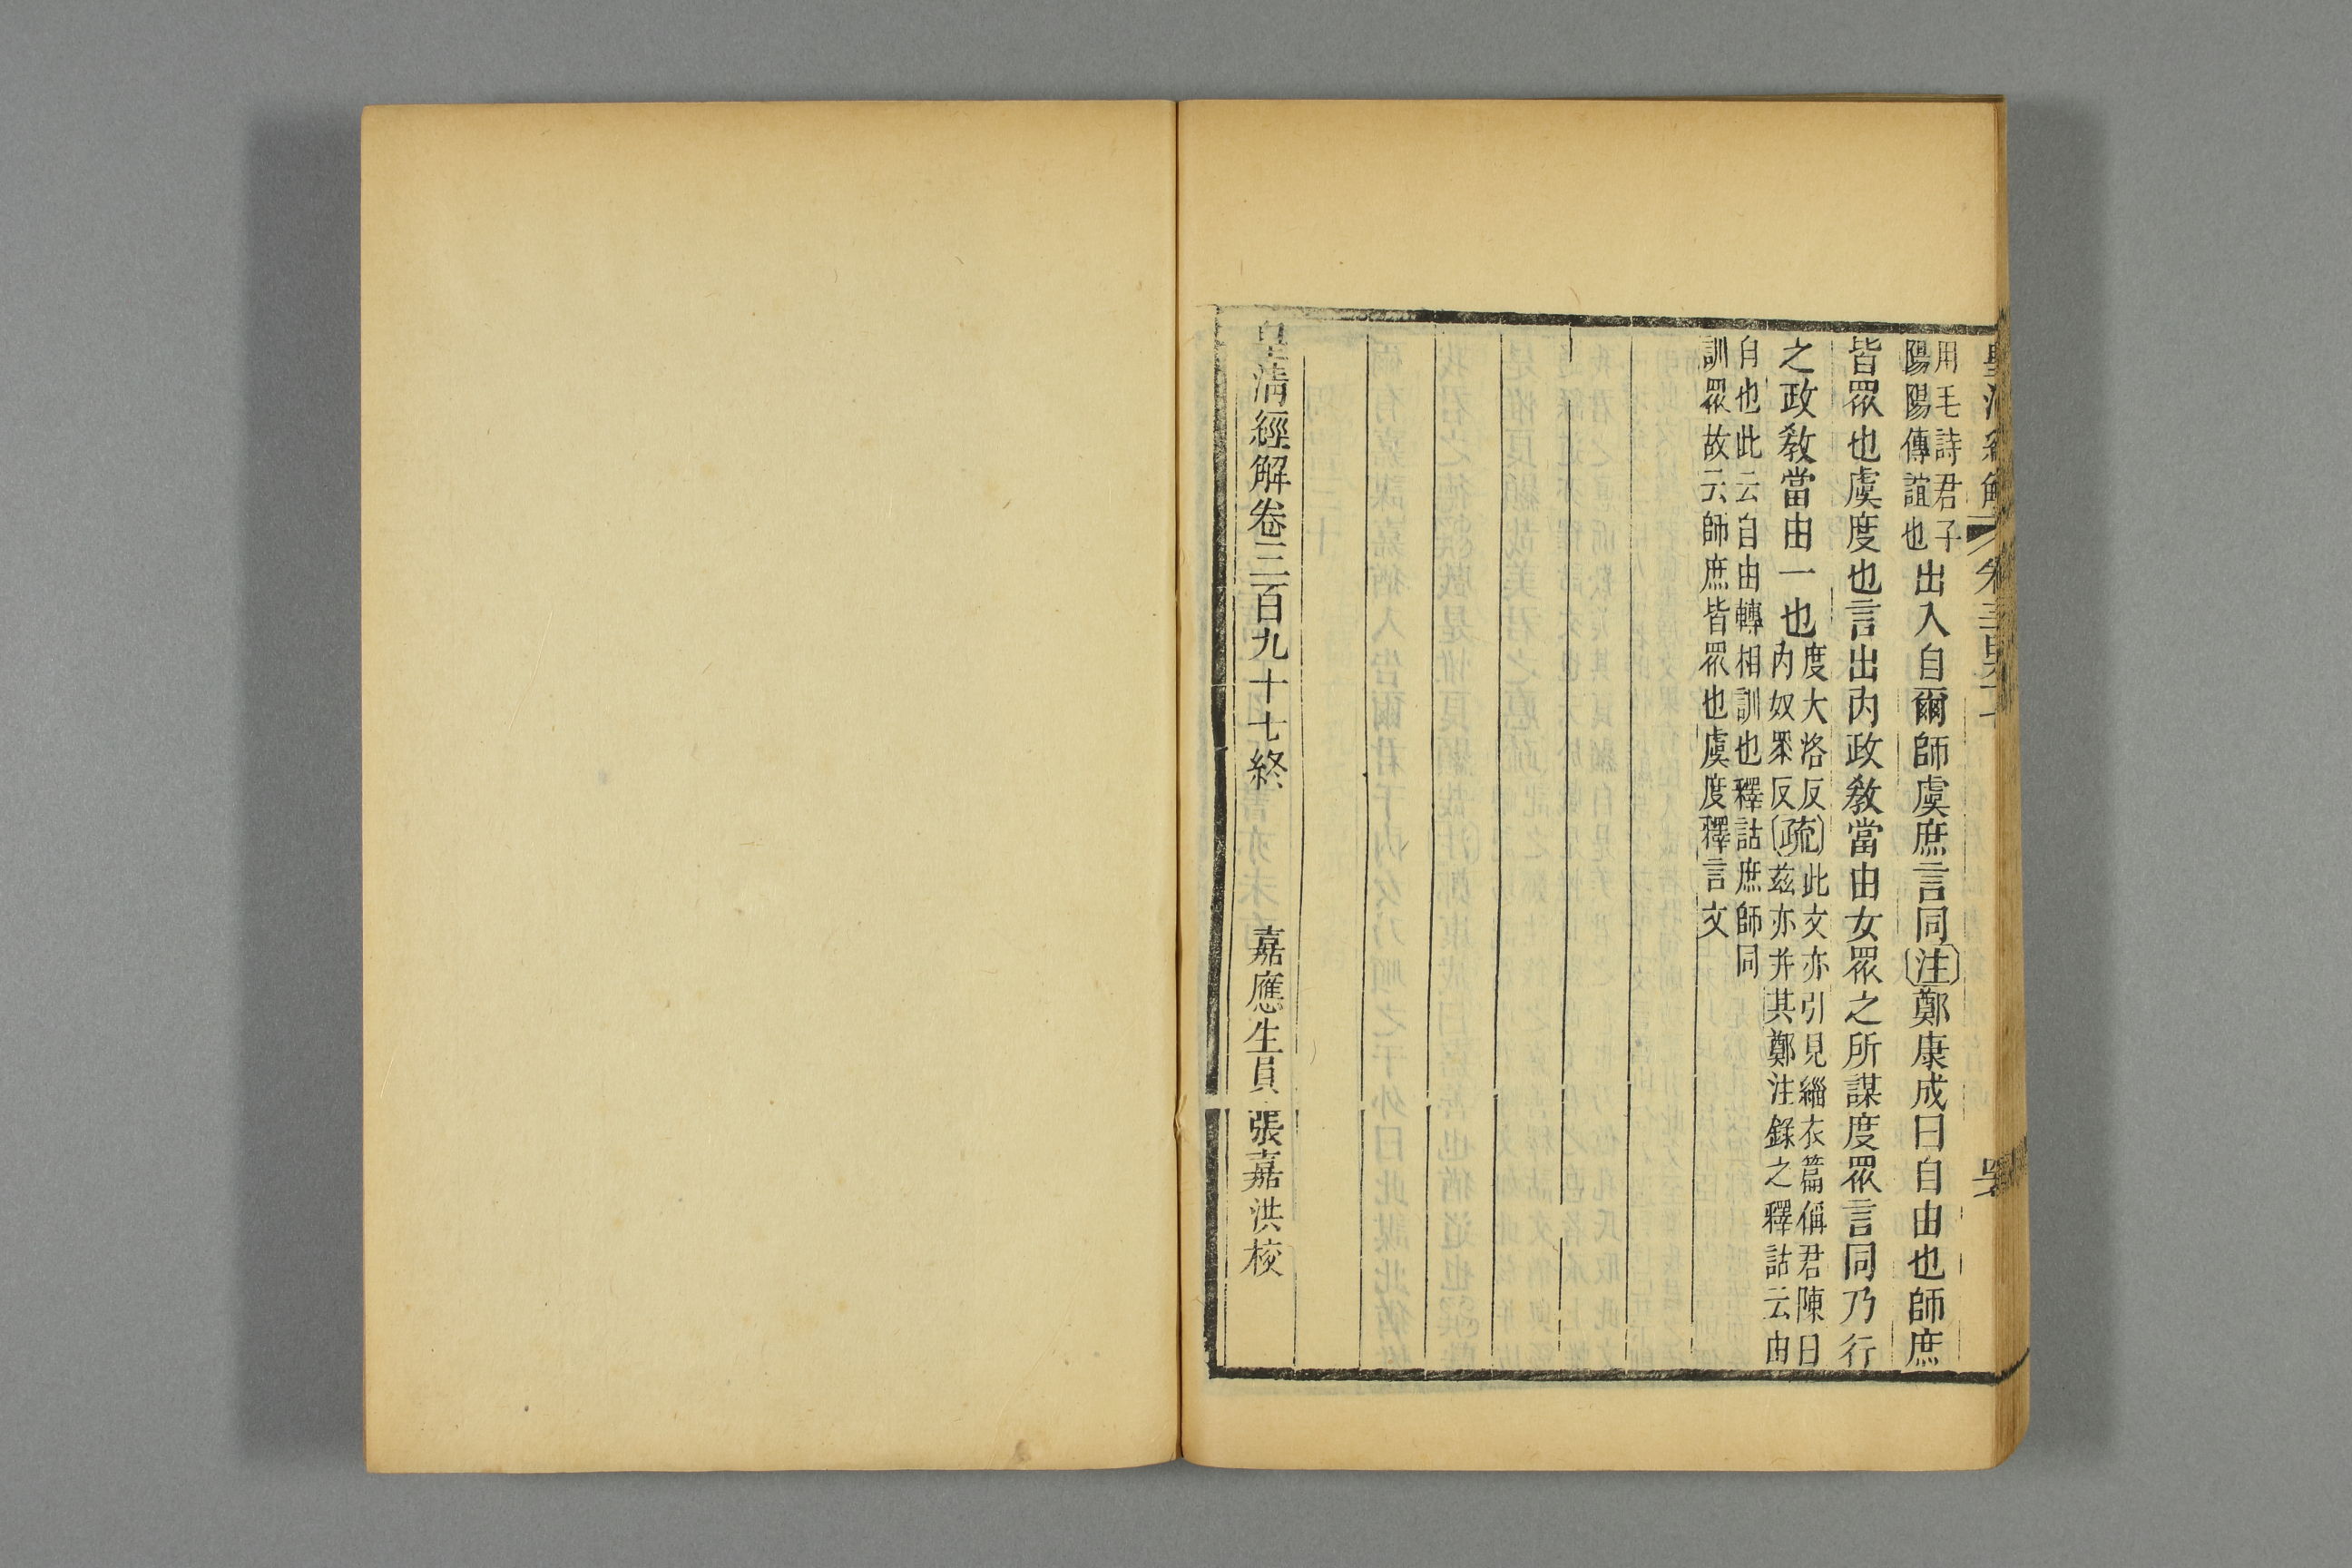 用毛詩君子
陽陽傳誼也
出入自爾師虞庶言同〔注〕鄭康成曰自由也師庶
皆眾也虞度也言出內政敎當由女眾之所謀度眾言同乃行
之政敎當由一也
度大洛反〔疏〕此文亦引見緇衣篇偁君陳曰
內奴眔反〔疏〕茲亦并其鄭注錄之釋詁云由
自也此云自由轉相訓也釋詁庶師同
訓眾故云師庶皆眾也虞度釋言文
皇淸經解卷三百九十七終
嘉應生員張嘉洪校